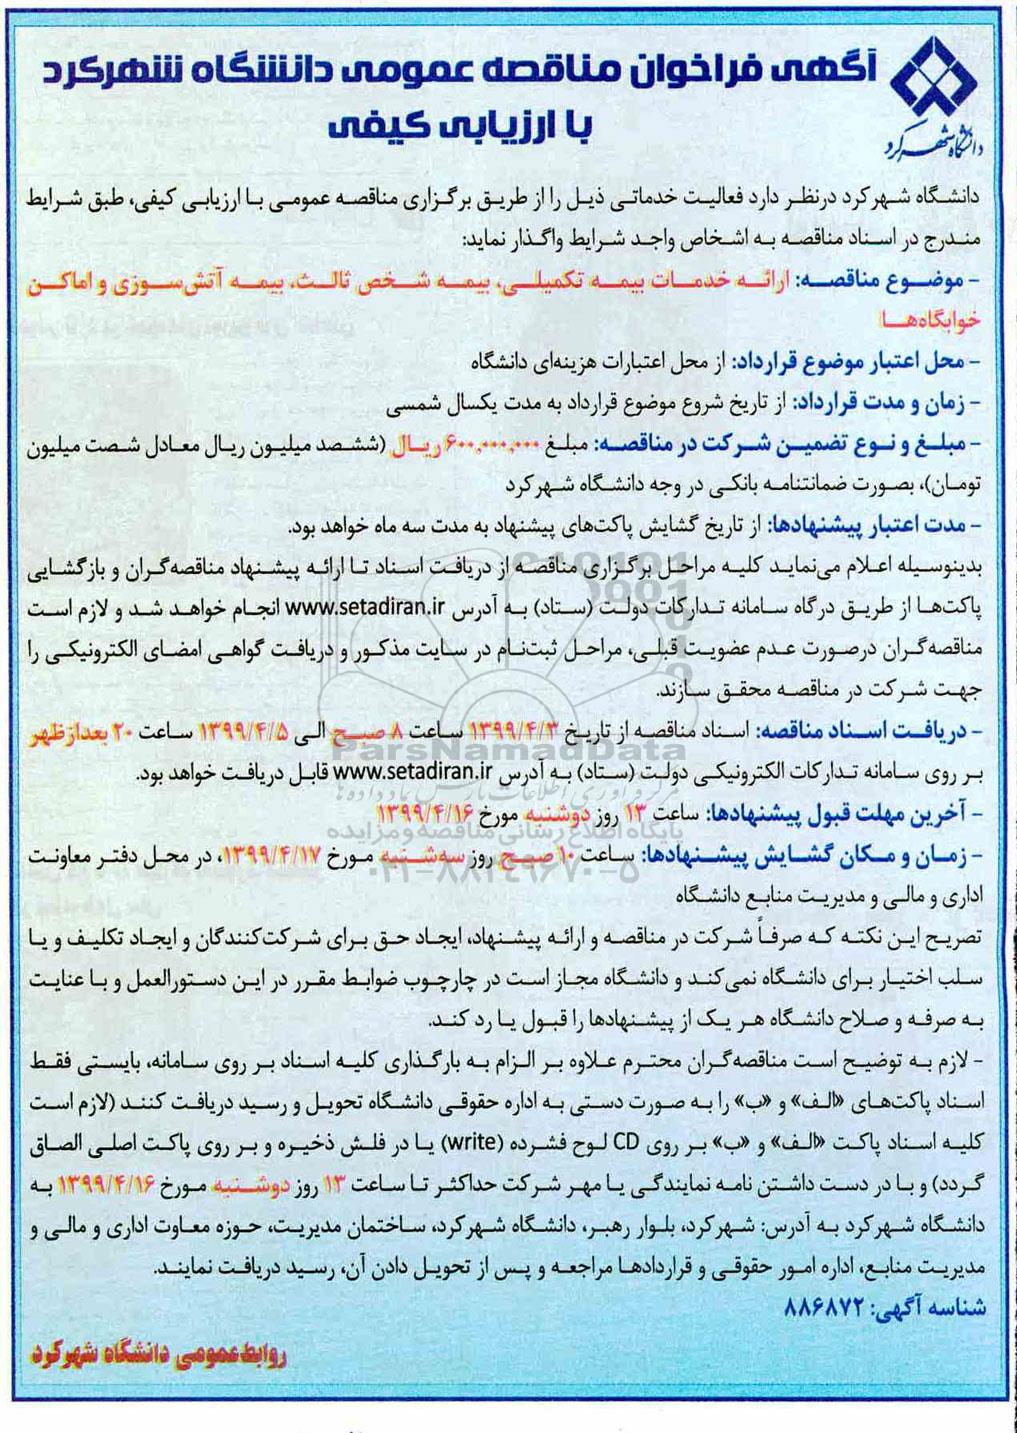 آگهی فراخوان مناقصه عمومی دانشگاه شهرکرد
با ارزیابی کیفی
دانشگاه شهرکرد
دانشگاه شهرکرد درنظر دارد فعالیت خدماتی ذیل را از طریق برگزاری مناقصه عمومی با ارزیابی کیفی، طبق شرایط
مندرج در اسناد مناقصه به اشخاص واجد شرایط واگذار نماید:
- موضوع مناقصه: ارائه خدمات بیمه تکمیلی، بیمه شخص ثالث، بیمه آتش‌سوزی و اماکن
خوابگاه‌ها
- محل اعتبار موضوع قرارداد: از محل اعتبارات هزینه‌ای دانشگاه
- زمان و مدت قرارداد: از تاریخ شروع موضوع قرارداد به مدت یکسال شمسی
- مبلغ و نوع تضمین شرکت در مناقصه: مبلغ ۶۰۰,۰۰۰,۰۰۰ ریال (ششصد میلیون ریال معادل شصت میلیون
تومان)، بصورت ضمانتنامه بانکی در وجه دانشگاه شهرکرد
- مدت اعتبار پیشنهادها: از تاریخ گشایش پاکت‌های پیشنهاد به مدت سه ماه خواهد بود.
بدینوسیله اعلام می‌نماید کلیه مراحل برگزاری مناقصه از دریافت اسناد تا ارائه پیشنهاد مناقصه‌گران و بازگشایی
پاکت‌ها از طریق درگاه سامانه تدارکات دولت (ستاد) به آدرس www.setadiran.ir انجام خواهد شد و لازم است
مناقصه‌گران درصورت عدم عضویت قبلی، مراحل ثبت‌نام در سایت مذکور و دریافت گواهی امضای الکترونیکی را
جهت شرکت در مناقصه محقق سازند.
- دریافت اسناد مناقصه: اسناد مناقصه از تاریخ ۱۳۹۹/۴/۳ ساعت ۸ صبح الی ۱۳۹۹/۴/۵ ساعت ۲۰ بعدازظهر
بر روی سامانه تدارکات الکترونیکی دولت (ستاد) به آدرس www.setadiran.ir قابل دریافت خواهد بود.
- آخرین مهلت قبول پیشنهادها: ساعت ۱۳ روز دوشنبه مورخ ۱۳۹۹/۴/۱۶
- زمان و مکان گشایش پیشنهادها: ساعت ۱۰ صبح روز سه‌شنبه مورخ ۱۳۹۹/۴/۱۷، در محل دفتر معاونت
اداری و مالی و مدیریت منابع دانشگاه
تصریح این نکته که صرفاً شرکت در مناقصه و ارائه پیشنهاد، ایجاد حق برای شرکت‌کنندگان و ایجاد تکلیف و یا
سلب اختیار برای دانشگاه نمی‌کند و دانشگاه مجاز است در چارچوب ضوابط مقرر در این دستورالعمل و با عنایت
به صرفه و صلاح دانشگاه هر یک از پیشنهادها را قبول یا رد کند.
- لازم به توضیح است مناقصه‌گران محترم علاوه بر الزام به بارگذاری کلیه اسناد بر روی سامانه، بایستی فقط
اسناد پاکت‌های «الف» و «ب» را به صورت دستی به اداره حقوقی دانشگاه تحویل و رسید دریافت کنند (لازم است
کلیه اسناد پاکت «الف» و «ب» بر روی CD لوح فشرده (write) یا در فلش ذخیره و بر روی پاکت اصلی الصاق
گردد) و با در دست داشتن نامه نمایندگی یا مهر شرکت حداکثر تا ساعت ۱۳ روز دوشنبه مورخ ۱۳۹۹/۴/۱۶ به
دانشگاه شهرکرد به آدرس: شهرکرد، بلوار رهبر، دانشگاه شهرکرد، ساختمان مدیریت، حوزه معاوت اداری و مالی و
مدیریت منابع، اداره امور حقوقی و قراردادها مراجعه و پس از تحویل دادن آن، رسید دریافت نمایند.
شناسه آگهی: ۸۸۶۸۷۲
روابط‌عمومی دانشگاه شهرکرد
ParsNamadData
مرکز فرآوری اطلاعات پارس نماد داده‌ها
پایگاه اطلاع رسانی مناقصه و مزایده
۰۲۱-۸۸۳۴۹۶۷۰-۵